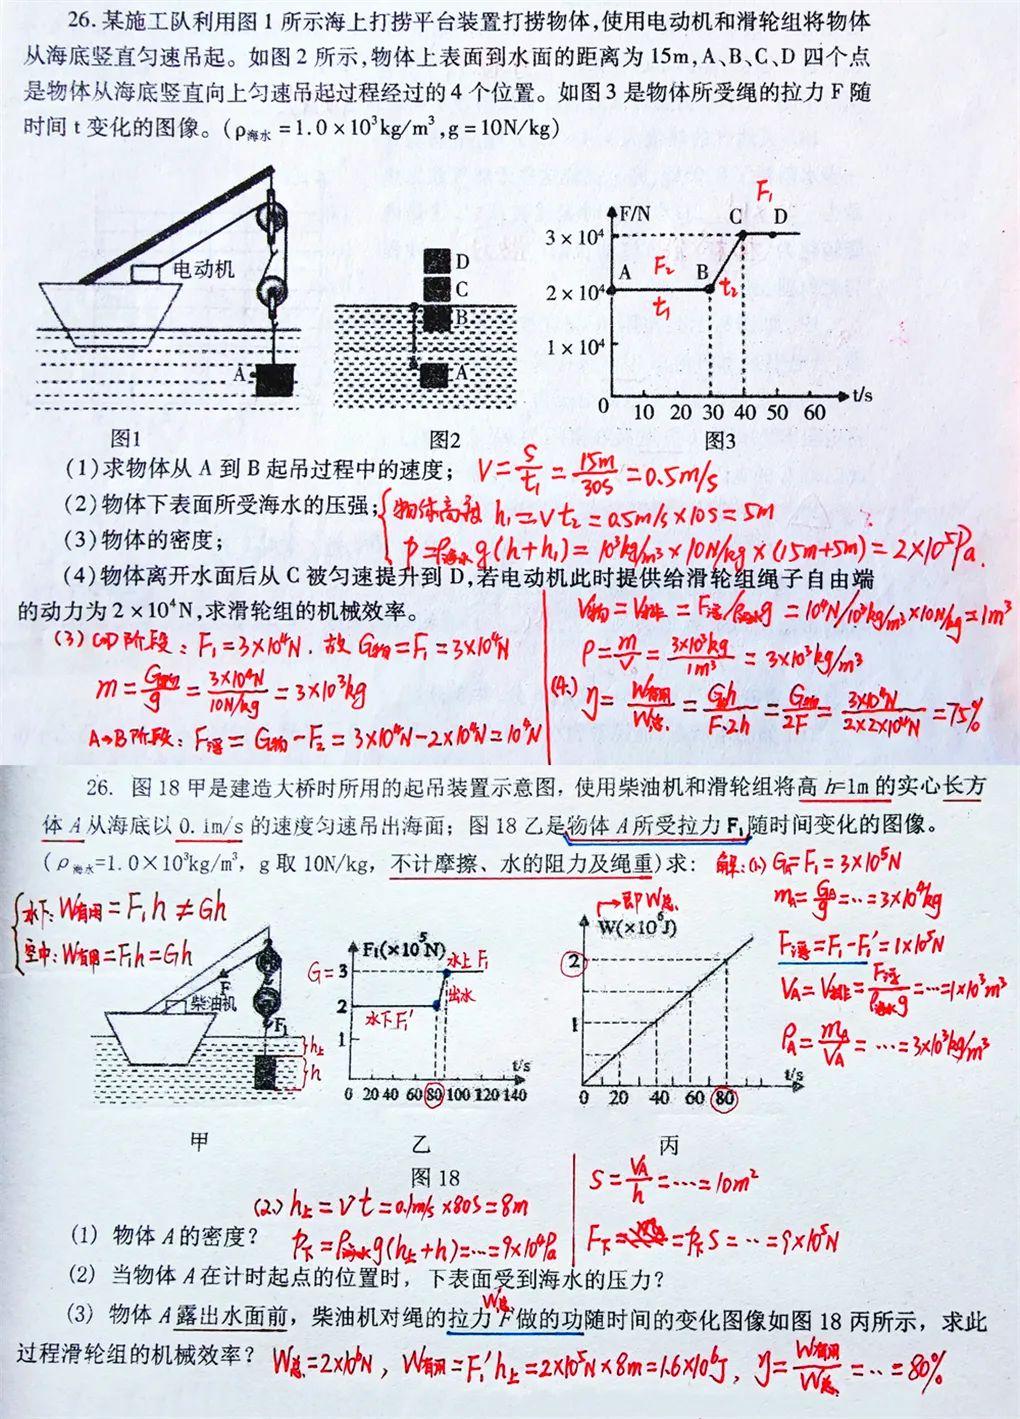 26.某施工队利用图1所示海上打捞平台装置打捞物体,使用电动机和滑轮组将物体
从海底竖直匀速吊起。如图2所示,物体上表面到水面的距离为15m,A、B、C、D四个点
是物体从海底竖直向上匀速吊起过程经过的4个位置。如图3是物体所受绳的拉力F随
时间t变化的图像。(ρ海水=1.0×10³kg/m³,g=10N/kg)
电动机
A
图1
D
C
B
A
图2
F/N
3×10⁴
2×10⁴
1×10⁴
A B C D
F₁
F₂
t₁
t₂
0 10 20 30 40 50 60 t/s
图3
(1)求物体从A到B起吊过程中的速度; V=S/t₁=15m/30s=0.5m/s
(2)物体下表面所受海水的压强; 物体高度 h₁=Vt₂=0.5m/s×10s=5m
(3)物体的密度; P=ρ海水g(h+h₁)=10³kg/m³×10N/kg×(15m+5m)=2×10⁵Pa.
(4)物体离开水面后从C被匀速提升到D,若电动机此时提供给滑轮组绳子自由端
的动力为2×10⁴N,求滑轮组的机械效率。
(3) CD阶段:F₁=3×10⁴N.故G物=F₁=3×10⁴N
m=G物/g=3×10⁴N/10N/kg=3×10³kg
A→B阶段:F浮=G物-F₂=3×10⁴N-2×10⁴N=10⁴N
V物=V排=F浮/ρ海水g=10⁴N/10³kg/m³×10N/kg=1m³
ρ=m/V=3×10³kg/1m³=3×10³kg/m³
(4.) η=W有用/W总=Gh/F·2h=G物/2F=3×10⁴N/2×2×10⁴N=75%
26. 图18甲是建造大桥时所用的起吊装置示意图,使用柴油机和滑轮组将高h=1m的实心长方
体A从海底以0.1m/s的速度匀速吊出海面;图18乙是物体A所受拉力F₁随时间变化的图像。
(ρ海水=1.0×10³kg/m³,g取10N/kg,不计摩擦、水的阻力及绳重)求: 解:(1) GA=F₁=3×10⁵N
mA=GA/g=…=3×10⁴kg
F浮=F₁-F₁'=1×10⁵N
VA=V排=F浮/ρ海水g=…=1×10³m³
ρA=mA/VA=…=3×10³kg/m³
水下:W有用=F₁h≠Gh
空中:W有用=F₁h=Gh
F
柴油机
F₁
h上
h
甲
F₁(×10⁵N)
G=3
2
1
水上F₁
出水
水下F₁'
0 20 40 60 80 100 120 140 t/s
乙
即W总
W(×10⁶J)
2
1
0 20 40 60 80 t/s
丙
图18
(2.) h上=Vt=0.1m/s×80s=8m
P下=ρ海水g(h上+h)=…=9×10⁴Pa
S=VA/h=…=10m²
F下=P下S=…=9×10⁵N
(1) 物体A的密度?
(2) 当物体A在计时起点的位置时,下表面受到海水的压力?
W总
(3) 物体A露出水面前,柴油机对绳的拉力F做的功随时间的变化图像如图18丙所示,求此
过程滑轮组的机械效率? W总=2×10⁶N, W有用=F₁'h上=2×10⁵N×8m=1.6×10⁶J, η=W有用/W总=…=80%